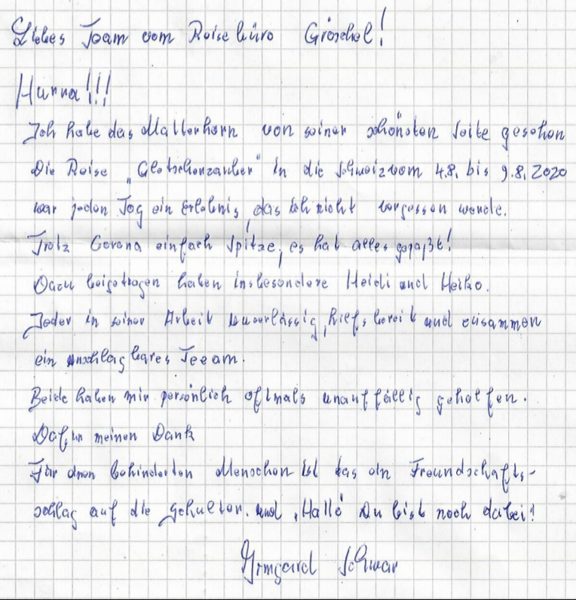 Liebes Team vom Reisebüro Gröschel!
Hurra!!!
Ich habe das Matterhorn von seiner schönsten Seite gesehen
Die Reise "Gletscherzauber" in die Schweiz vom 4.8. bis 9.8.2020
war jeden Tag ein Erlebnis, das ich nicht vergessen werde.
Trotz Corona einfach Spitze, es hat alles gepaßt!
Dazu beigetragen haben insbesondere Heidi und Heiko.
Jeder in seiner Arbeit zuverlässig, hilfsbereit und zusammen
ein unschlagbares Teeam.
Beide haben mir persönlich oftmals unauffällig geholfen.
Dafür meinen Dank
Für einen behinderten Menschen ist das ein Freundschafts-
schlag auf die Schulter. und "Hallo" Du bist noch dabei!
Irmgard Schwar